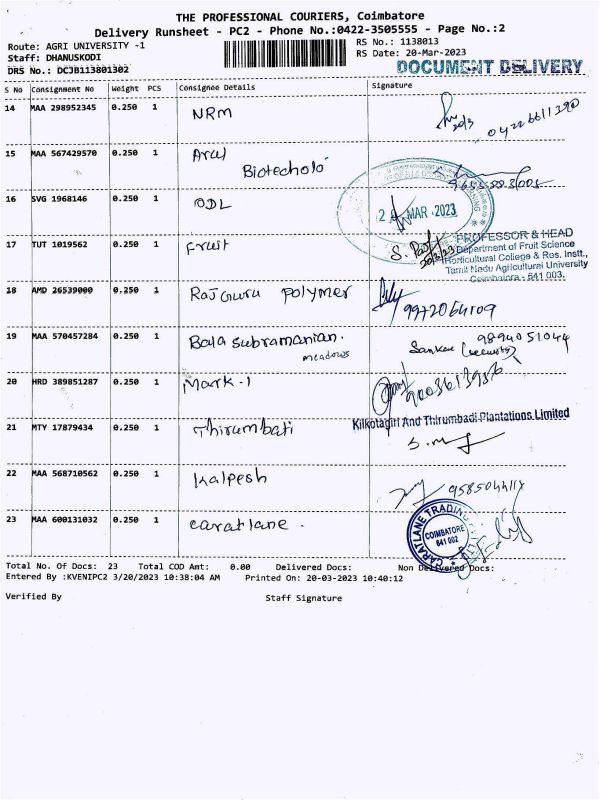 THE PROFESSIONAL COURIERS, Coimbatore
Delivery Runsheet - PC2 - Phone No.:0422-3505555 - Page No.:2
Route: AGRI UNIVERSITY -1
RS No.: 1138013
Staff: DHANUSKODI
RS Date: 20-Mar-2023
DRS No.: DCJB113801302
DOCUMENT DELIVERY
S No Consignment No Weight PCS Consignee Details Signature
14 MAA 298952345 0.250 1 NRM
20/3 04226611390
15 MAA 567429570 0.250 1 Arul
Biotecholo
16 SVG 1968146 0.250 1 ODL
MAR 2023
17 TUT 1019562 0.250 1 Fruit
PROFESSOR & HEAD
Department of Fruit Science
Horticultural College & Res. Instt.,
Tamil Nadu Agricultural University
Coimbatore - 641 003.
18 AMD 26539000 0.250 1 Rajguru polymer
9972064109
19 MAA 570457284 0.250 1 Bala subramanian.
meadows
9894051044
Sankar (security)
20 HRD 389851287 0.250 1 Mark-1
21 MTY 17879434 0.250 1 Thirumbati
Kilkotagiri And Thirumbadi Plantations Limited
22 MAA 568710562 0.250 1 Kalpesh
23 MAA 600131032 0.250 1 caratlane.
CARATLANE TRADING
COIMBATORE
641 002
Total No. Of Docs: 23 Total COD Amt: 0.00 Delivered Docs: Non Delivered Docs:
Entered By :KVENIPC2 3/20/2023 10:38:04 AM Printed On: 20-03-2023 10:40:12
Verified By Staff Signature